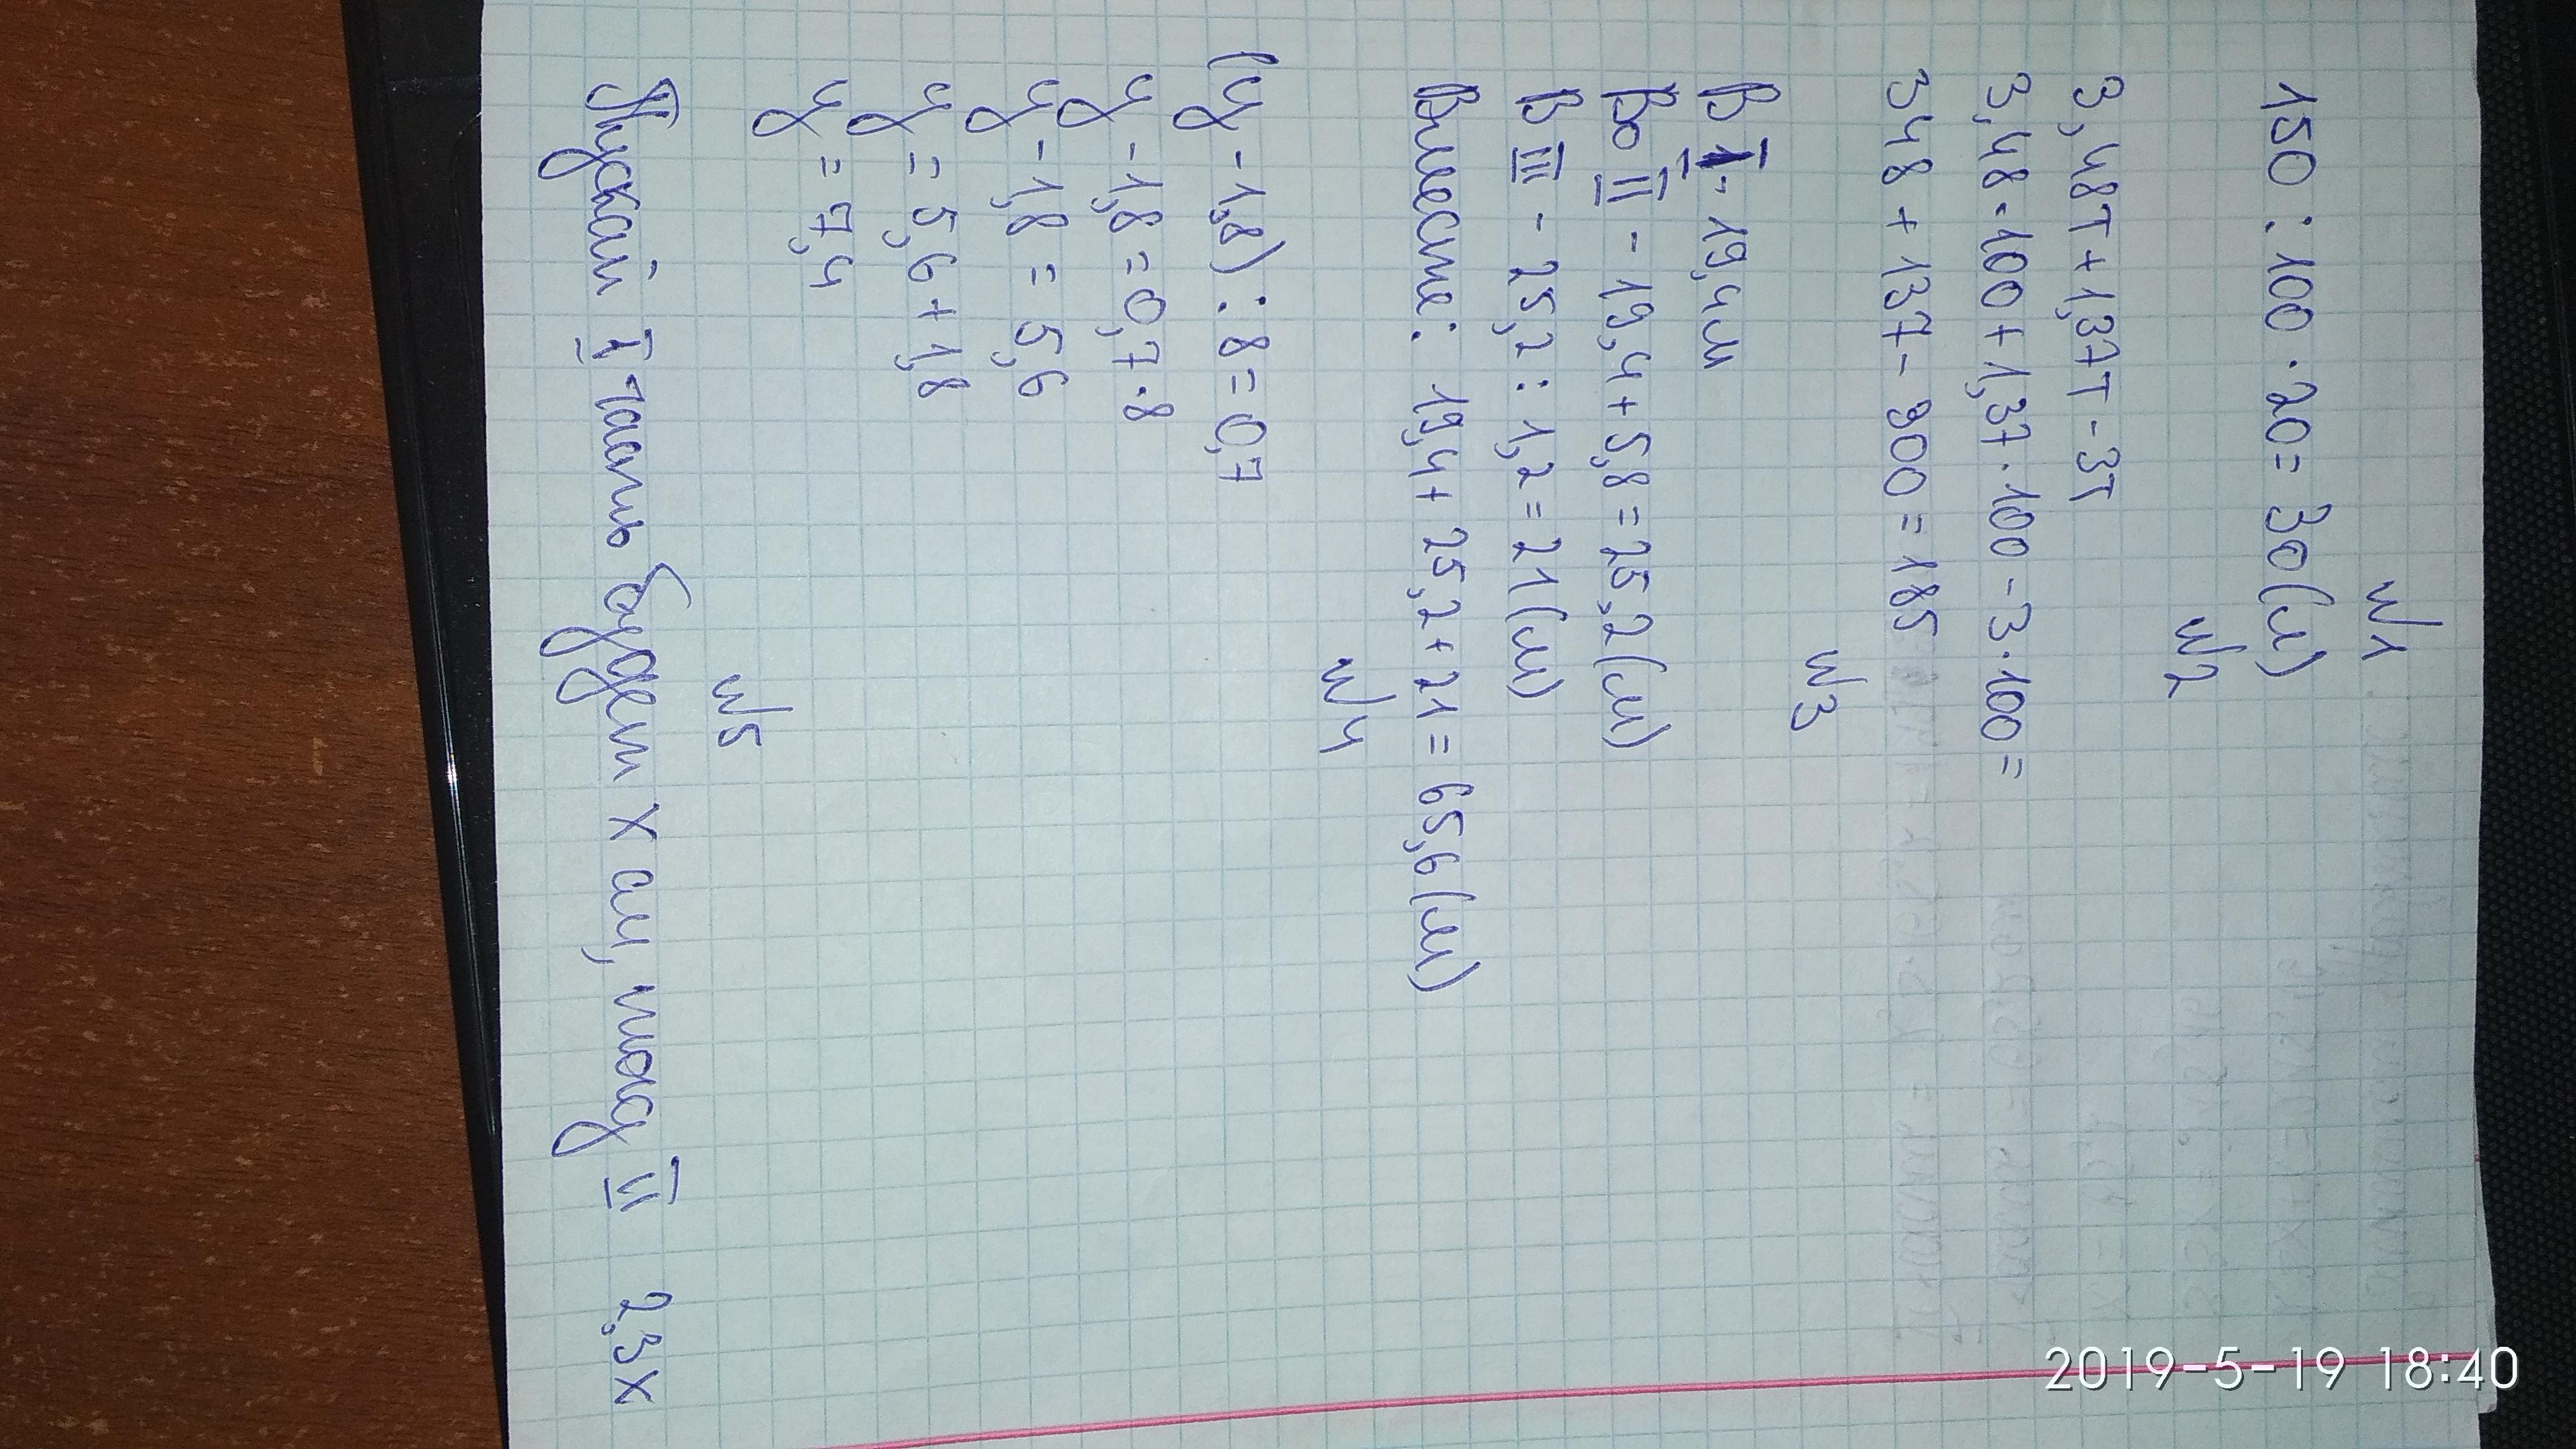 №1
150:100·20=30(м)
№2
3,48т+1,37т-3т
3,48·100+1,37·100-3·100=
348+137-300=185
№3
В I - 19,4м
Во II - 19,4+5,8=25,2(м)
В III - 25,2:1,2=21(м)
Вместе: 19,4+25,2+21=65,6(м)
№4
(y-1,8):8=0,7
y-1,8=0,7·8
y-1,8=5,6
y=5,6+1,8
y=7,4
№5
Пускай I часть будет x см, тогд II 2,3x
2019-5-19 18:40